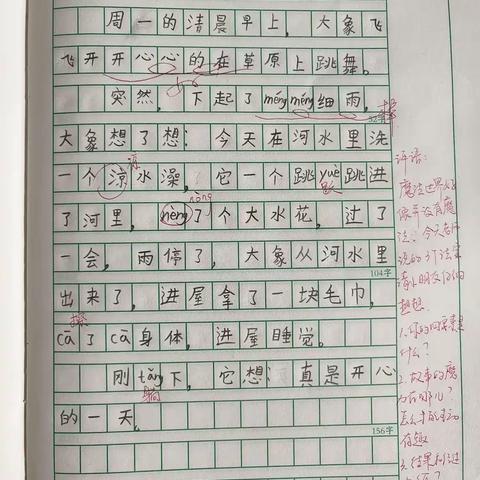 周一的清晨早上，大象飞
飞开开心心的在草原上跳舞。
突然，下起了méngméng细雨，
52字
大象想了想：今天在河水里洗
一个凉水澡，它一个跳yuè跳进
凉
跃
nòng
了河里，nèng了个大水花，过了
一会，雨停了，大象从河水里
104字
出来了，进屋拿了一块毛巾，
擦
cā了cā身体，进屋睡觉。
刚tǎng下，它想：真是开心
躺
的一天。
156字
评语：
魔法世界
没有魔
法？今天
想想
1.你的
什么？
2.故事的魔
力在哪儿？
怎么才能生动
有趣
3.结果